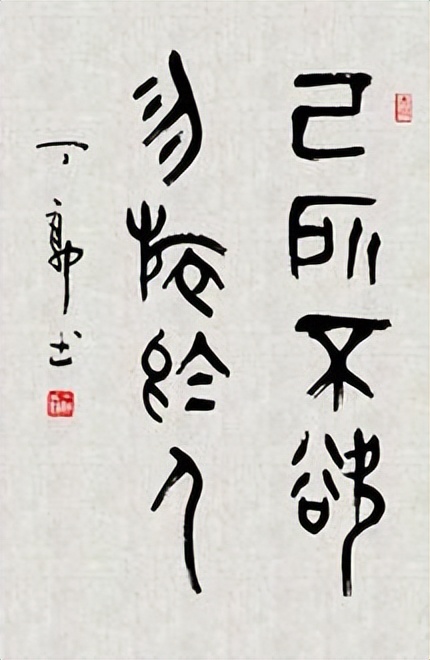 己所不欲
勿施於人
丁郭士